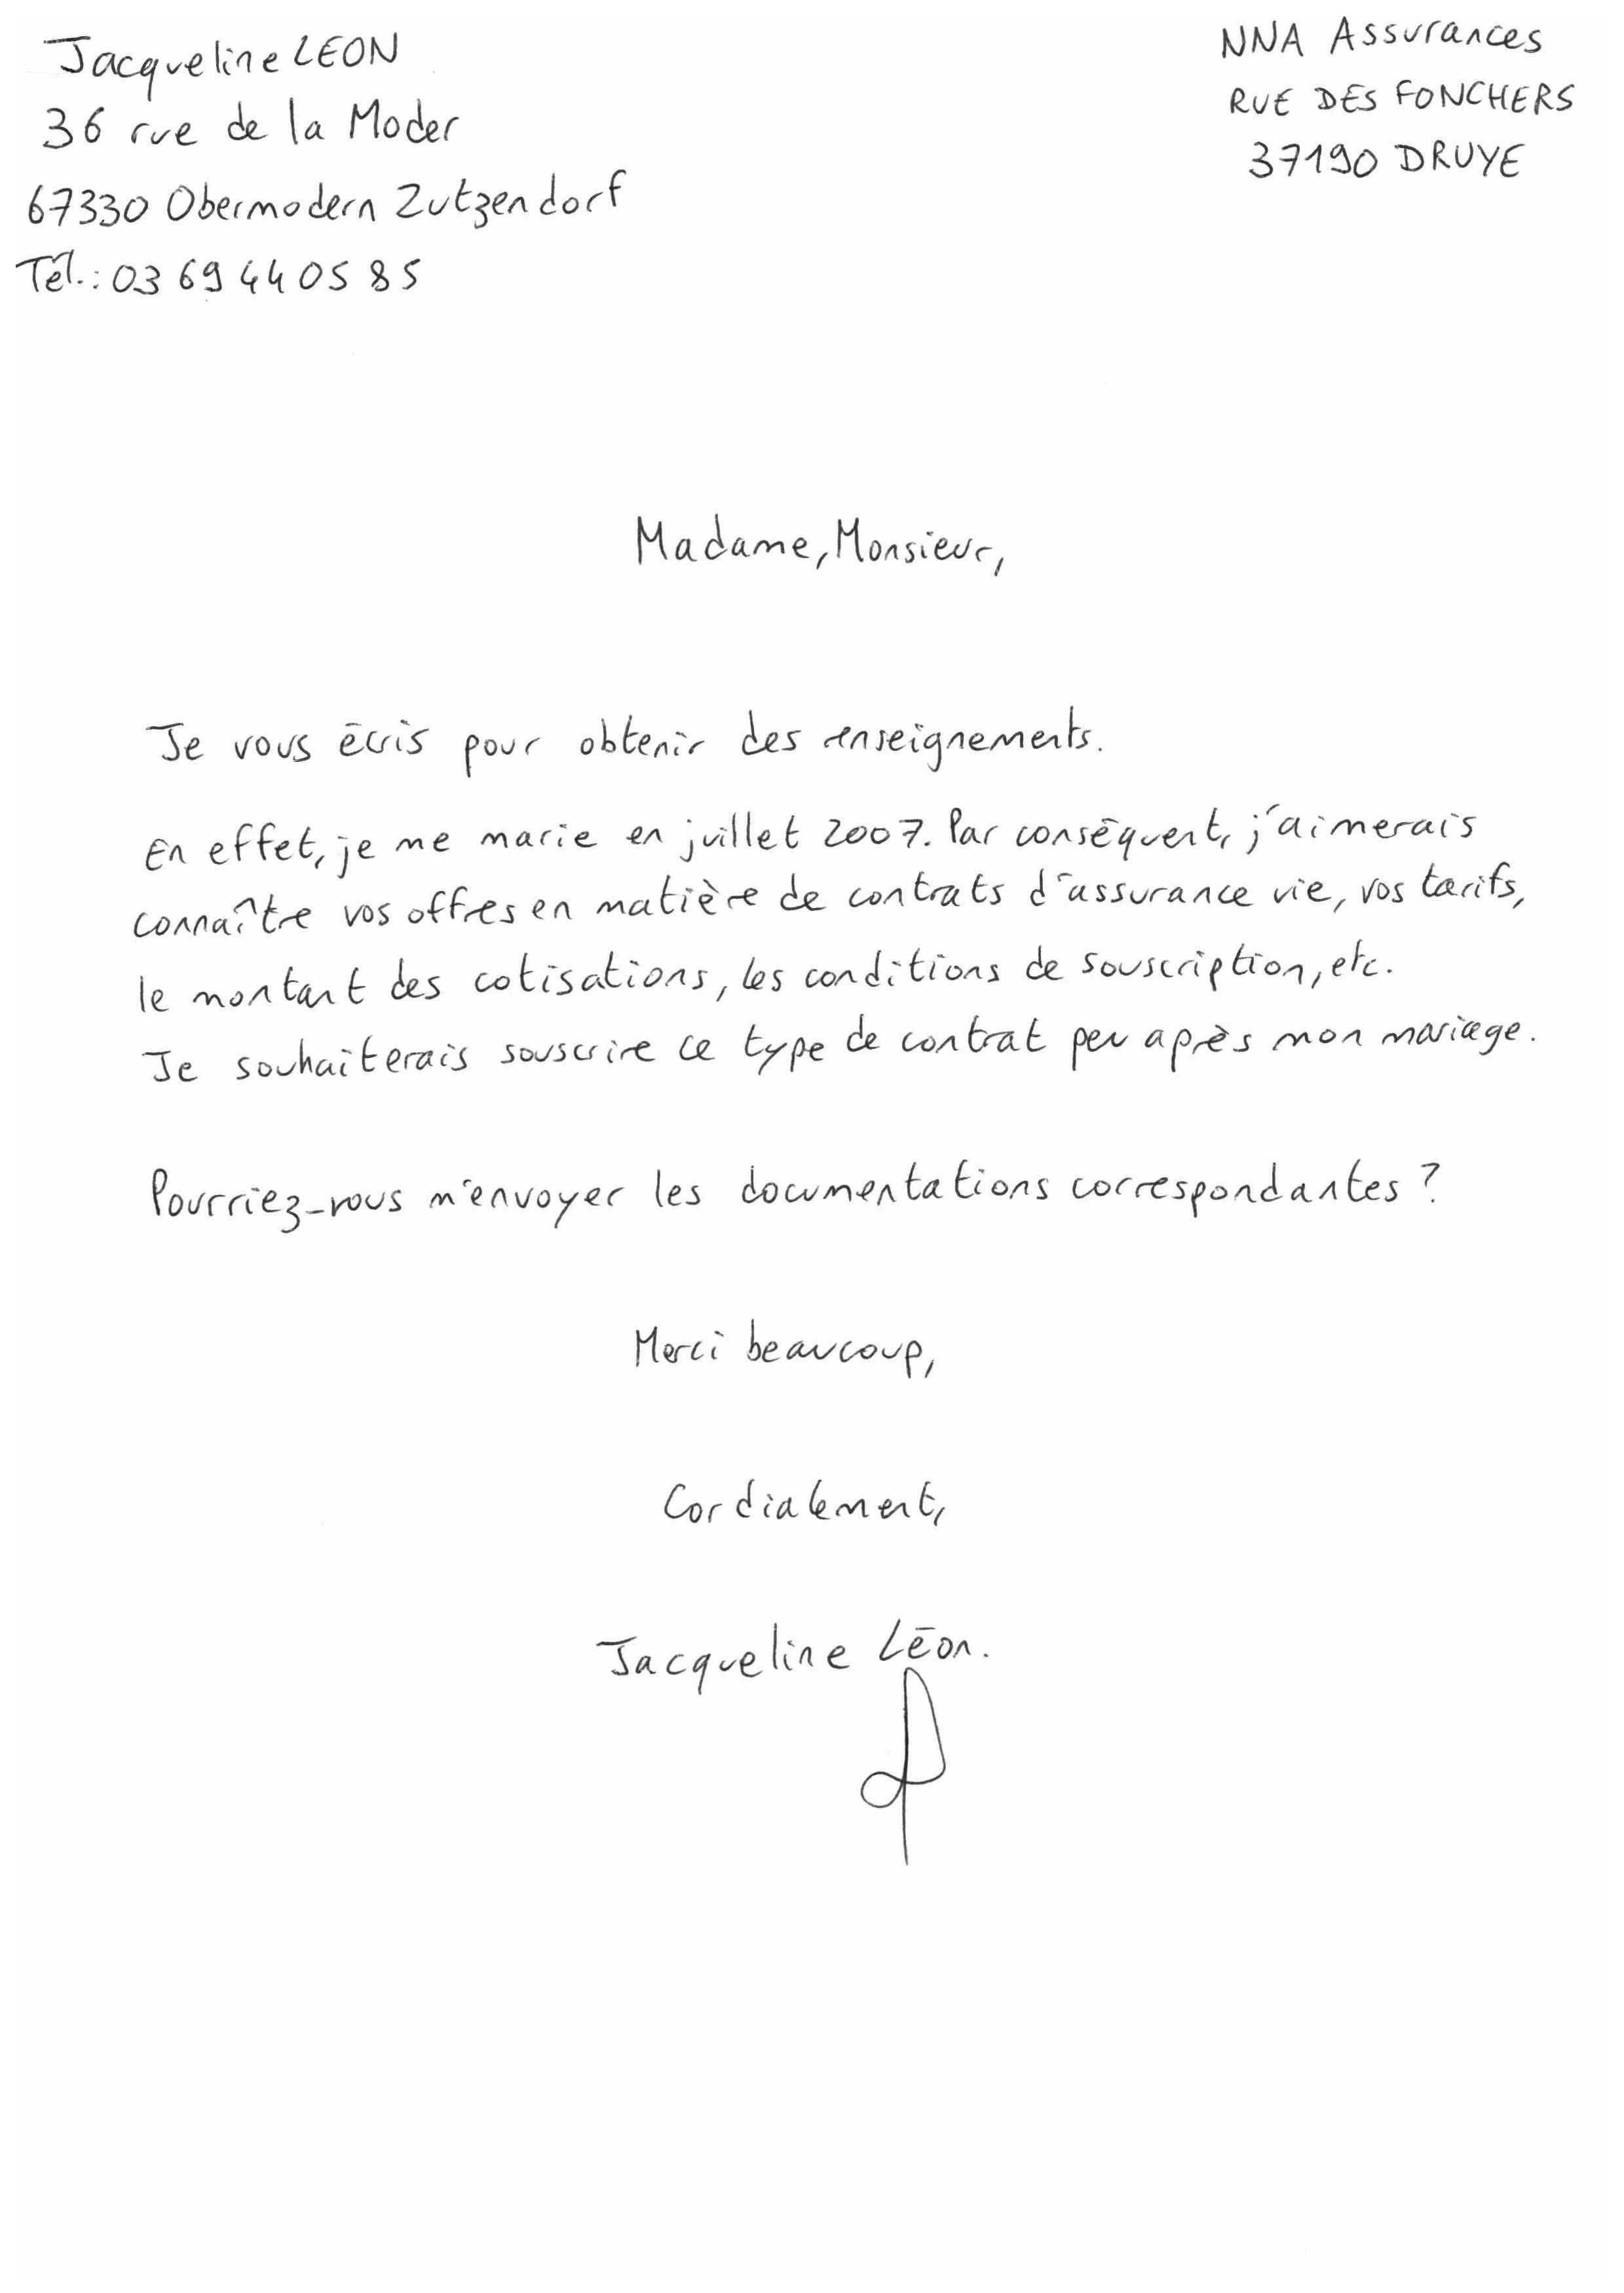 Jacqueline LEON
36 rue de la Moder
67330 Obermodern Zutzendorf
Tél.: 03 69 44 05 85
NNA Assurances
RUE DES FONCHERS
37190 DRUYE
Madame, Monsieur,
Je vous écris pour obtenir des renseignements.
En effet, je me marie en juillet 2007. Par conséquent, j'aimerais
connaître vos offres en matière de contrats d'assurance vie, vos tarifs,
le montant des cotisations, les conditions de souscription, etc.
Je souhaiterais souscrire ce type de contrat peu après mon mariage.
Pourriez-vous m'envoyer les documentations correspondantes ?
Merci beaucoup,
Cordialement,
Jacqueline Léon.